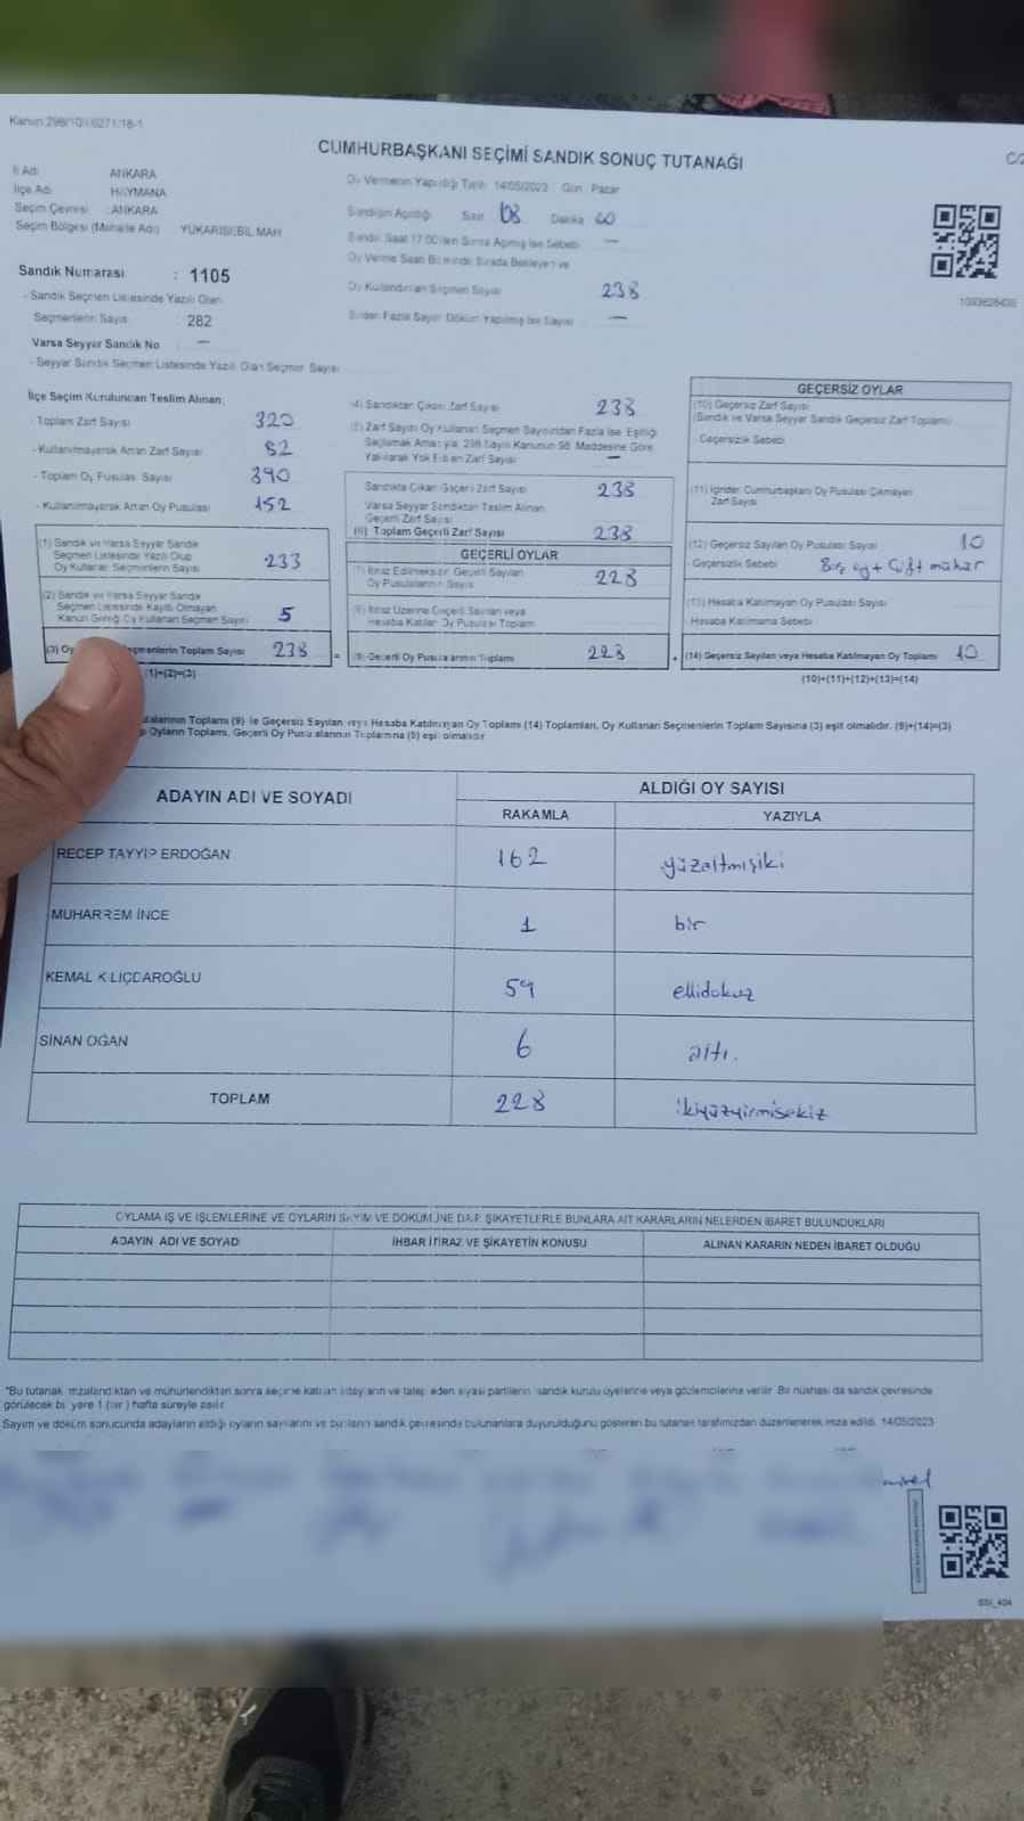 Kanun 298/101/6271/18-1
CUMHURBAŞKANI SEÇİMİ SANDIK SONUÇ TUTANAĞI
İl Adı ANKARA
İlçe Adı HAYMANA
Seçim Çevresi : ANKARA
Seçim Bölgesi (Mahalle Adı) YUKARISEBİL MAH
Sandık Numarası : 1105
- Sandık Seçmen Listesinde Yazılı Olan
Seçmenlerin Sayısı 282
Varsa Seyyar Sandık No —
- Seyyar Sandık Seçmen Listesinde Yazılı Olan Seçmen Sayısı
Oy Vermenin Yapıldığı Tarih 14/05/2023 Gün Pazar
Sandığın Açıldığı Saat 08 Dakika 00
Sandık Saat 17.00'den Sonra Açılmış İse Sebebi —
Oy Verme Saati Bitiminde Sırada Bekleyen ve
Oy Kullandırılan Seçmen Sayısı 238
Birden Fazla Sayım Döküm Yapılmış İse Sayısı —
İlçe Seçim Kurulundan Teslim Alınan;
Toplam Zarf Sayısı 320
- Kullanılmayarak Artan Zarf Sayısı 82
- Toplam Oy Pusulası Sayısı 390
- Kullanılmayarak Artan Oy Pusulası 152
(1) Sandık ve Varsa Seyyar Sandık
Seçmen Listesinde Yazılı Olup
Oy Kullanan Seçmenlerin Sayısı 233
(2) Sandık ve Varsa Seyyar Sandık
Seçmen Listesinde Kayıtlı Olmayan
Kanun Gereği Oy Kullanan Seçmen Sayısı 5
(3) Oy Seçmenlerin Toplam Sayısı 238
(1)+(2)=(3)
(4) Sandıktan Çıkan Zarf Sayısı 238
(5) Zarf Sayısı Oy Kullanan Seçmen Sayısından Fazla İse, Eşitliği
Sağlamak Amacıyla 298 Sayılı Kanunun 98. Maddesine Göre
Yakılarak Yok Edilen Zarf Sayısı —
Sandıkta Çıkan Geçerli Zarf Sayısı 238
Varsa Seyyar Sandıktan Teslim Alınan
Geçerli Zarf Sayısı
(6) Toplam Geçerli Zarf Sayısı 238
GEÇERLİ OYLAR
(7) İtiraz Edilmeksizin Geçerli Sayılan
Oy Pusulalarının Sayısı 228
(8) İtiraz Üzerine Geçerli Sayılan veya
Hesaba Katılan Oy Pusulası Toplamı
(9) Geçerli Oy Pusulalarının Toplamı 228
GEÇERSİZ OYLAR
(10) Geçersiz Zarf Sayısı
(Sandık ve Varsa Seyyar Sandık Geçersiz Zarf Toplamı)
Geçersizlik Sebebi
(11) İçinden Cumhurbaşkanı Oy Pusulası Çıkmayan
Zarf Sayısı
(12) Geçersiz Sayılan Oy Pusulası Sayısı 10
Geçersizlik Sebebi Boş oy + Çift mühür
(13) Hesaba Katılmayan Oy Pusulası Sayısı
Hesaba Katılmama Sebebi
(14) Geçersiz Sayılan veya Hesaba Katılmayan Oy Toplamı 10
(10)+(11)+(12)+(13)=(14)
Toplamı (9) ile Geçersiz Sayılan veya Hesaba Katılmayan Oy Toplamı (14) Toplamları, Oy Kullanan Seçmenlerin Toplam Sayısına (3) eşit olmalıdır. (9)+(14)=(3)
Oyların Toplamı, Geçerli Oy Pusulalarının Toplamına (9) eşit olmalıdır
ADAYIN ADI VE SOYADI ALDIĞI OY SAYISI
RAKAMLA YAZIYLA
RECEP TAYYİP ERDOĞAN 162 yüzaltmışiki
MUHARREM İNCE 1 bir
KEMAL KILIÇDAROĞLU 59 ellidokuz
SİNAN OĞAN 6 altı.
TOPLAM 228 ikiyüzyirmisekiz
OYLAMA İŞ VE İŞLEMLERİNE VE OYLARIN SAYIM VE DÖKÜMÜNE DAİR ŞİKAYETLERLE BUNLARA AİT KARARLARIN NELERDEN İBARET BULUNDUKLARI
ADAYIN ADI VE SOYADI İHBAR İTİRAZ VE ŞİKAYETİN KONUSU ALINAN KARARIN NEDEN İBARET OLDUĞU
*Bu tutanak imzalandıktan ve mühürlendikten sonra seçime katılan adayların ve talep eden siyasi partilerin sandık kurulu üyelerine veya gözlemcilerine verilir. Bir nüshası da sandık çevresinde
görülecek bir yere 1 (bir) hafta süreyle asılır
Sayım ve döküm sonucunda adayların aldığı oyların sayılarını ve bunların sandık çevresinde bulunanlara duyurulduğunu gösteren bu tutanak tarafımızdan düzenlenerek imza edildi. 14/05/2023